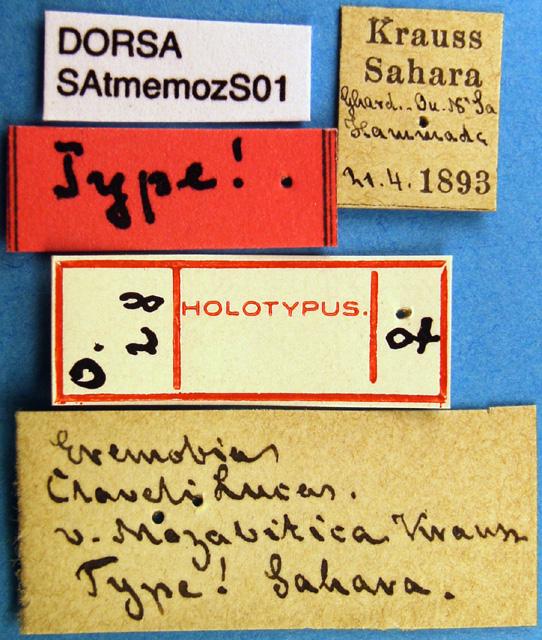 DORSA
SAtmemozS01
Krauss
Sahara
Hammada
21.4. 1893
Type! .
O. 28
HOLOTYPUS.
♀
Eremobia
Claveli Lucas.
v. Mozabitica Krauss
Type! Sahara.